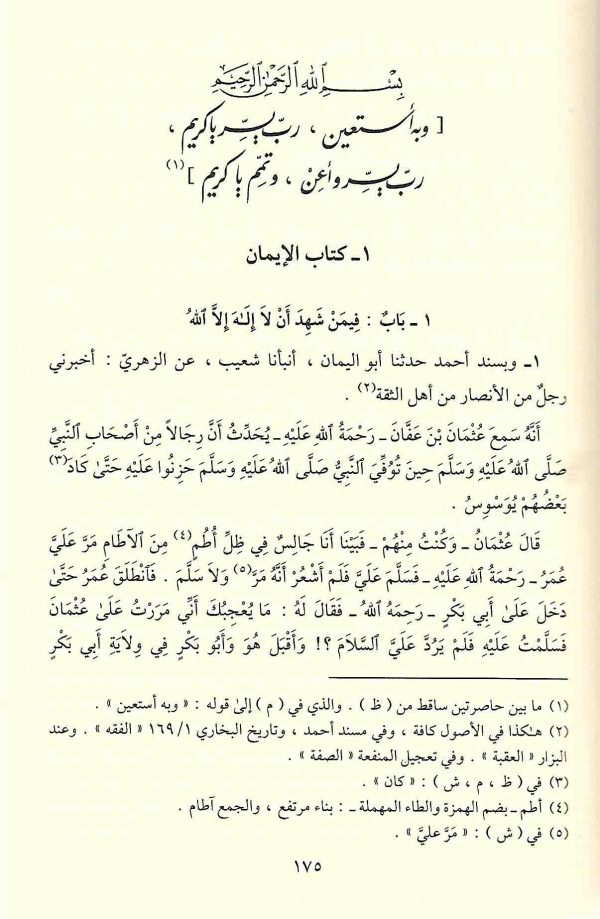 بِسْمِ اللهِ الرَّحْمٰنِ الرَّحِيمِ
[ وبه أستعين ، ربّ يسّر يا كريم ،
ربّ يسّر وأعِنْ ، وتمّم يا كريم ](١)
١ـ كتاب الإيمان
١ ـ بَابٌ : فِيمَنْ شَهِدَ أَنْ لاَ إِلَـٰهَ إِلاَّ ٱللهُ
١ـ وبسند أحمد حدثنا أبو اليمان ، أنبأنا شعيب ، عن الزهريّ : أخبرني
رجلٌ من الأنصار من أهل الثقة(٢) .
أَنَّهُ سَمِعَ عُثْمَانَ بْنَ عَفَّانَ ـ رَحْمَةُ ٱللهِ عَلَيْهِ ـ يُحَدِّثُ أَنَّ رِجَالاً مِنْ أَصْحَابِ ٱلنَّبِيِّ
صَلَّى ٱللهُ عَلَيْهِ وَسَلَّمَ حِينَ تُوُفِّيَ ٱلنَّبِيُّ صَلَّى ٱللهُ عَلَيْهِ وَسَلَّمَ حَزِنُوا عَلَيْهِ حَتَّىٰ كَادَ(٣)
بَعْضُهُمْ يُوَسْوِسُ .
قَالَ عُثْمَانُ ـ وَكُنْتُ مِنْهُمْ ـ فَبَيْنَا أَنَا جَالِسٌ فِي ظِلِّ أُطُمٍ(٤) مِنَ ٱلآطَامِ مَرَّ عَلَيَّ
عُمَرُ ـ رَحْمَةُ ٱللهِ عَلَيْهِ ـ فَسَلَّمَ عَلَيَّ فَلَمْ أَشْعُرْ أَنَّهُ مَرَّ(٥) وَلاَ سَلَّمَ . فَٱنْطَلَقَ عُمَرُ حَتَّىٰ
دَخَلَ عَلَىٰ أَبِي بَكْرٍ ـ رَحِمَهُ ٱللهُ ـ فَقَالَ لَهُ : مَا يُعْجِبُكَ أَنِّي مَرَرْتُ عَلَىٰ عُثْمَانَ
فَسَلَّمْتُ عَلَيْهِ فَلَمْ يَرُدَّ عَلَيَّ ٱلسَّلاَمَ ؟! وَأَقْبَلَ هُوَ وَأَبُو بَكْرٍ فِي وِلاَيَةِ أَبِي بَكْرٍ
(١) ما بين حاصرتين ساقط من ( ظ ) . والذي في ( م ) إلىٰ قوله : « وبه أستعين » .
(٢) هـٰكذا في الأصول كافة ، وفي مسند أحمد ، وتاريخ البخاري ١٦٩/١ « الفقه » . وعند
البزار « العقبة » . وفي تعجيل المنفعة « الصفة » .
(٣) في ( ظ ، م ، ش ) : « كان » .
(٤) أطم ـ بضم الهمزة والطاء المهملة ـ : بناء مرتفع ، والجمع آطام .
(٥) في ( ش ) : « مَرَّ عليَّ » .
١٧٥